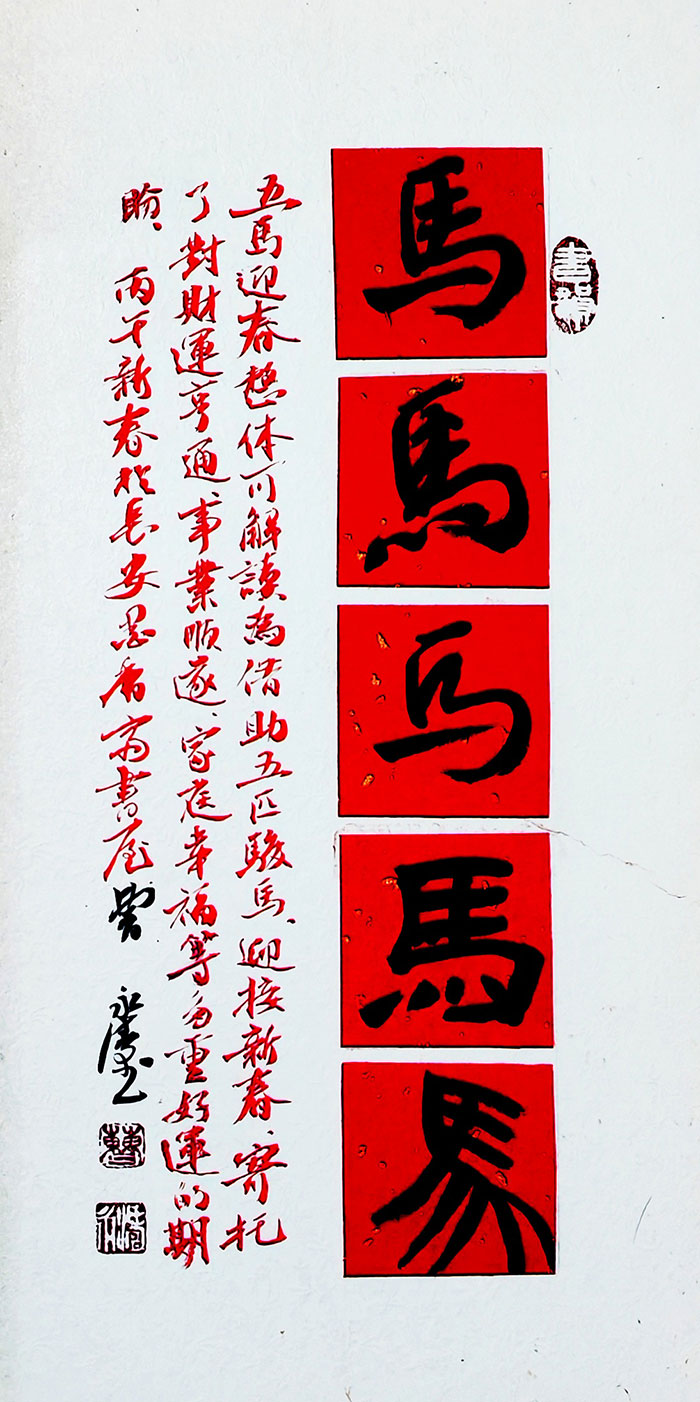 馬馬马馬馬
五馬迎春整体可解讀為借助五匹駿馬、迎接新春、寄托
了對財運亨通、事業順遂、家庭幸福等多重好運的期
盼、丙午新春於長安墨香斋書屋 曹